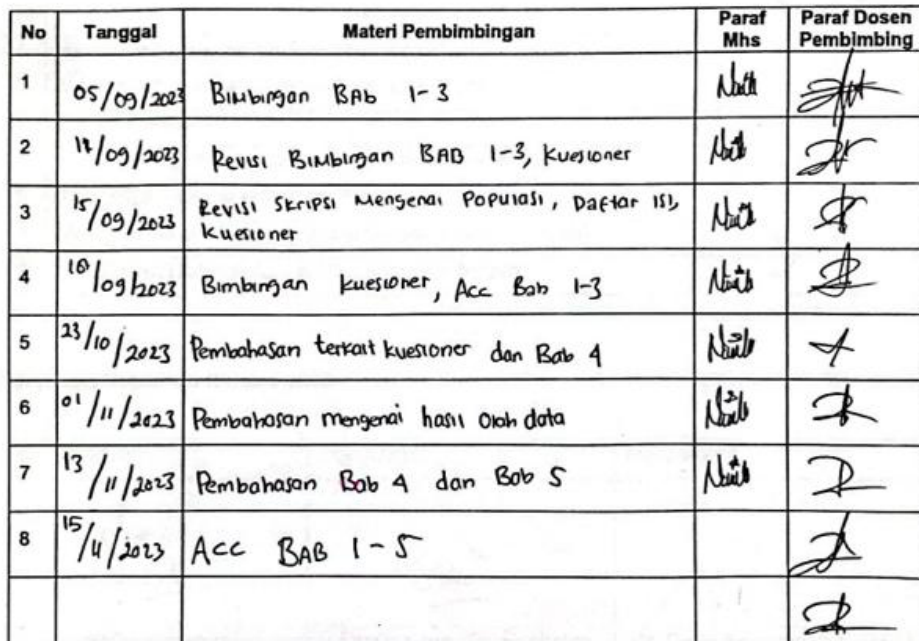 No Tanggal Materi Pembimbingan Paraf Mhs Paraf Dosen Pembimbing
1 05/09/2023 Bimbingan BAb 1-3
2 /09/2023 Revisi Bimbingan BAB 1-3, Kuesioner
3 15/09/2023 Revisi Skripsi Mengenai Populasi, Daftar Isi,
Kuesioner
4 /09/2023 Bimbingan kuesioner, Acc Bab 1-3
5 23/10/2023 Pembahasan terkait kuesioner dan Bab 4
6 01/11/2023 Pembahasan mengenai hasil olah data
7 13/11/2023 Pembahasan Bab 4 dan Bab 5
8 15/11/2023 ACC BAB 1-5